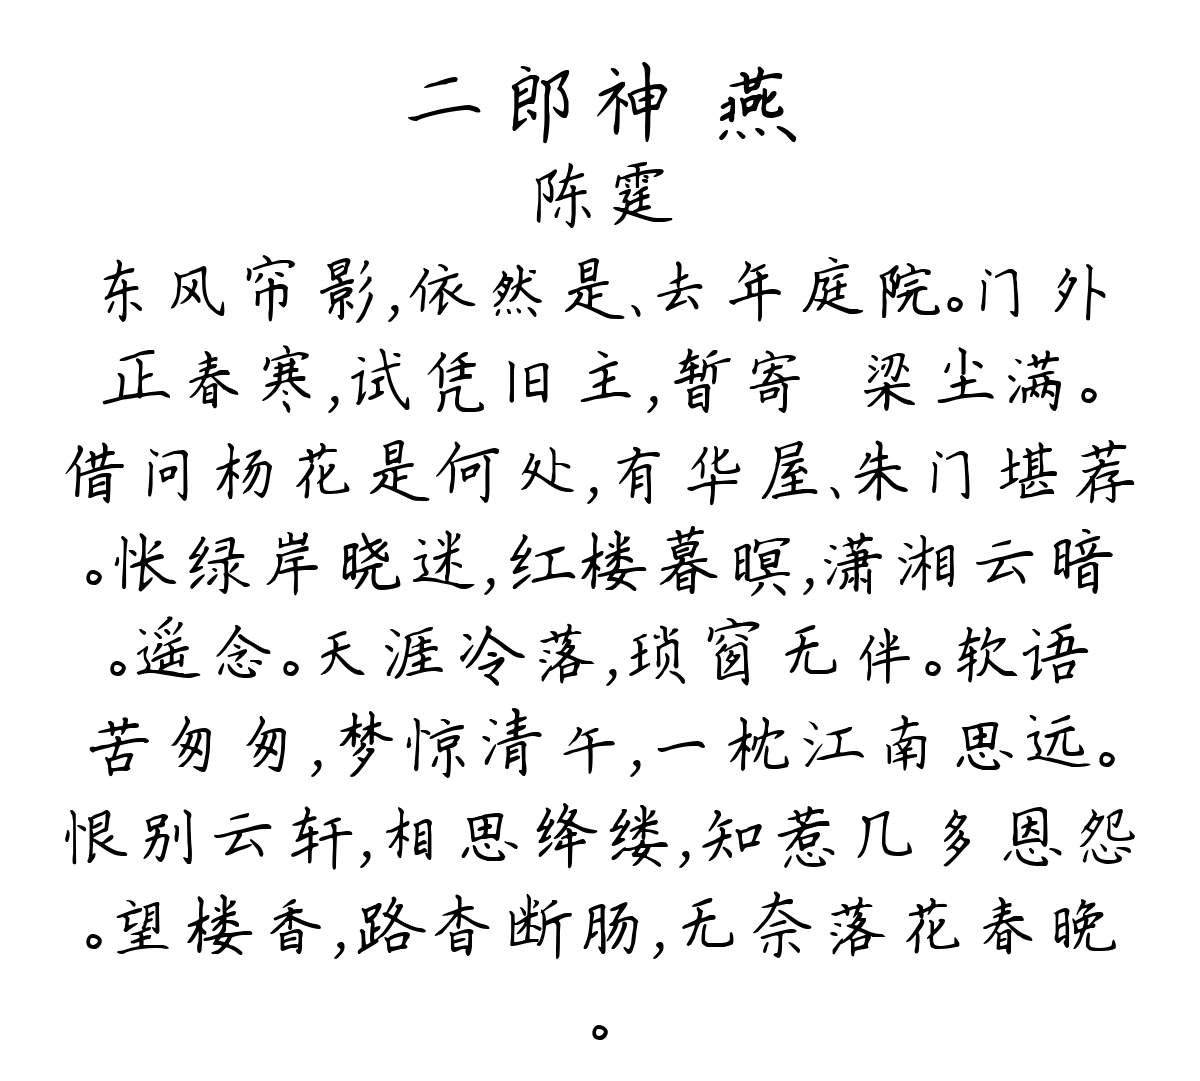 二郎神 燕
陈霆
东风帘影,依然是、去年庭院。门外
正春寒,试凭旧主,暂寄 梁尘满。
借问杨花是何处,有华屋、朱门堪荐
。怅绿岸晓迷,红楼暮暝,潇湘云暗
。遥念。天涯冷落,琐窗无伴。软语
苦匆匆,梦惊清午,一枕江南思远。
恨别云轩,相思绛缕,知惹几多恩怨
。望楼香,路杳断肠,无奈落花春晚
。